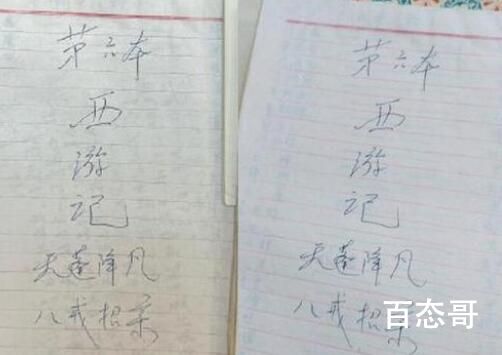 第六本
西
游
记
天蓬降凡
八戒招亲
第六本
西
游
记
天蓬降凡
八戒招亲
百态哥